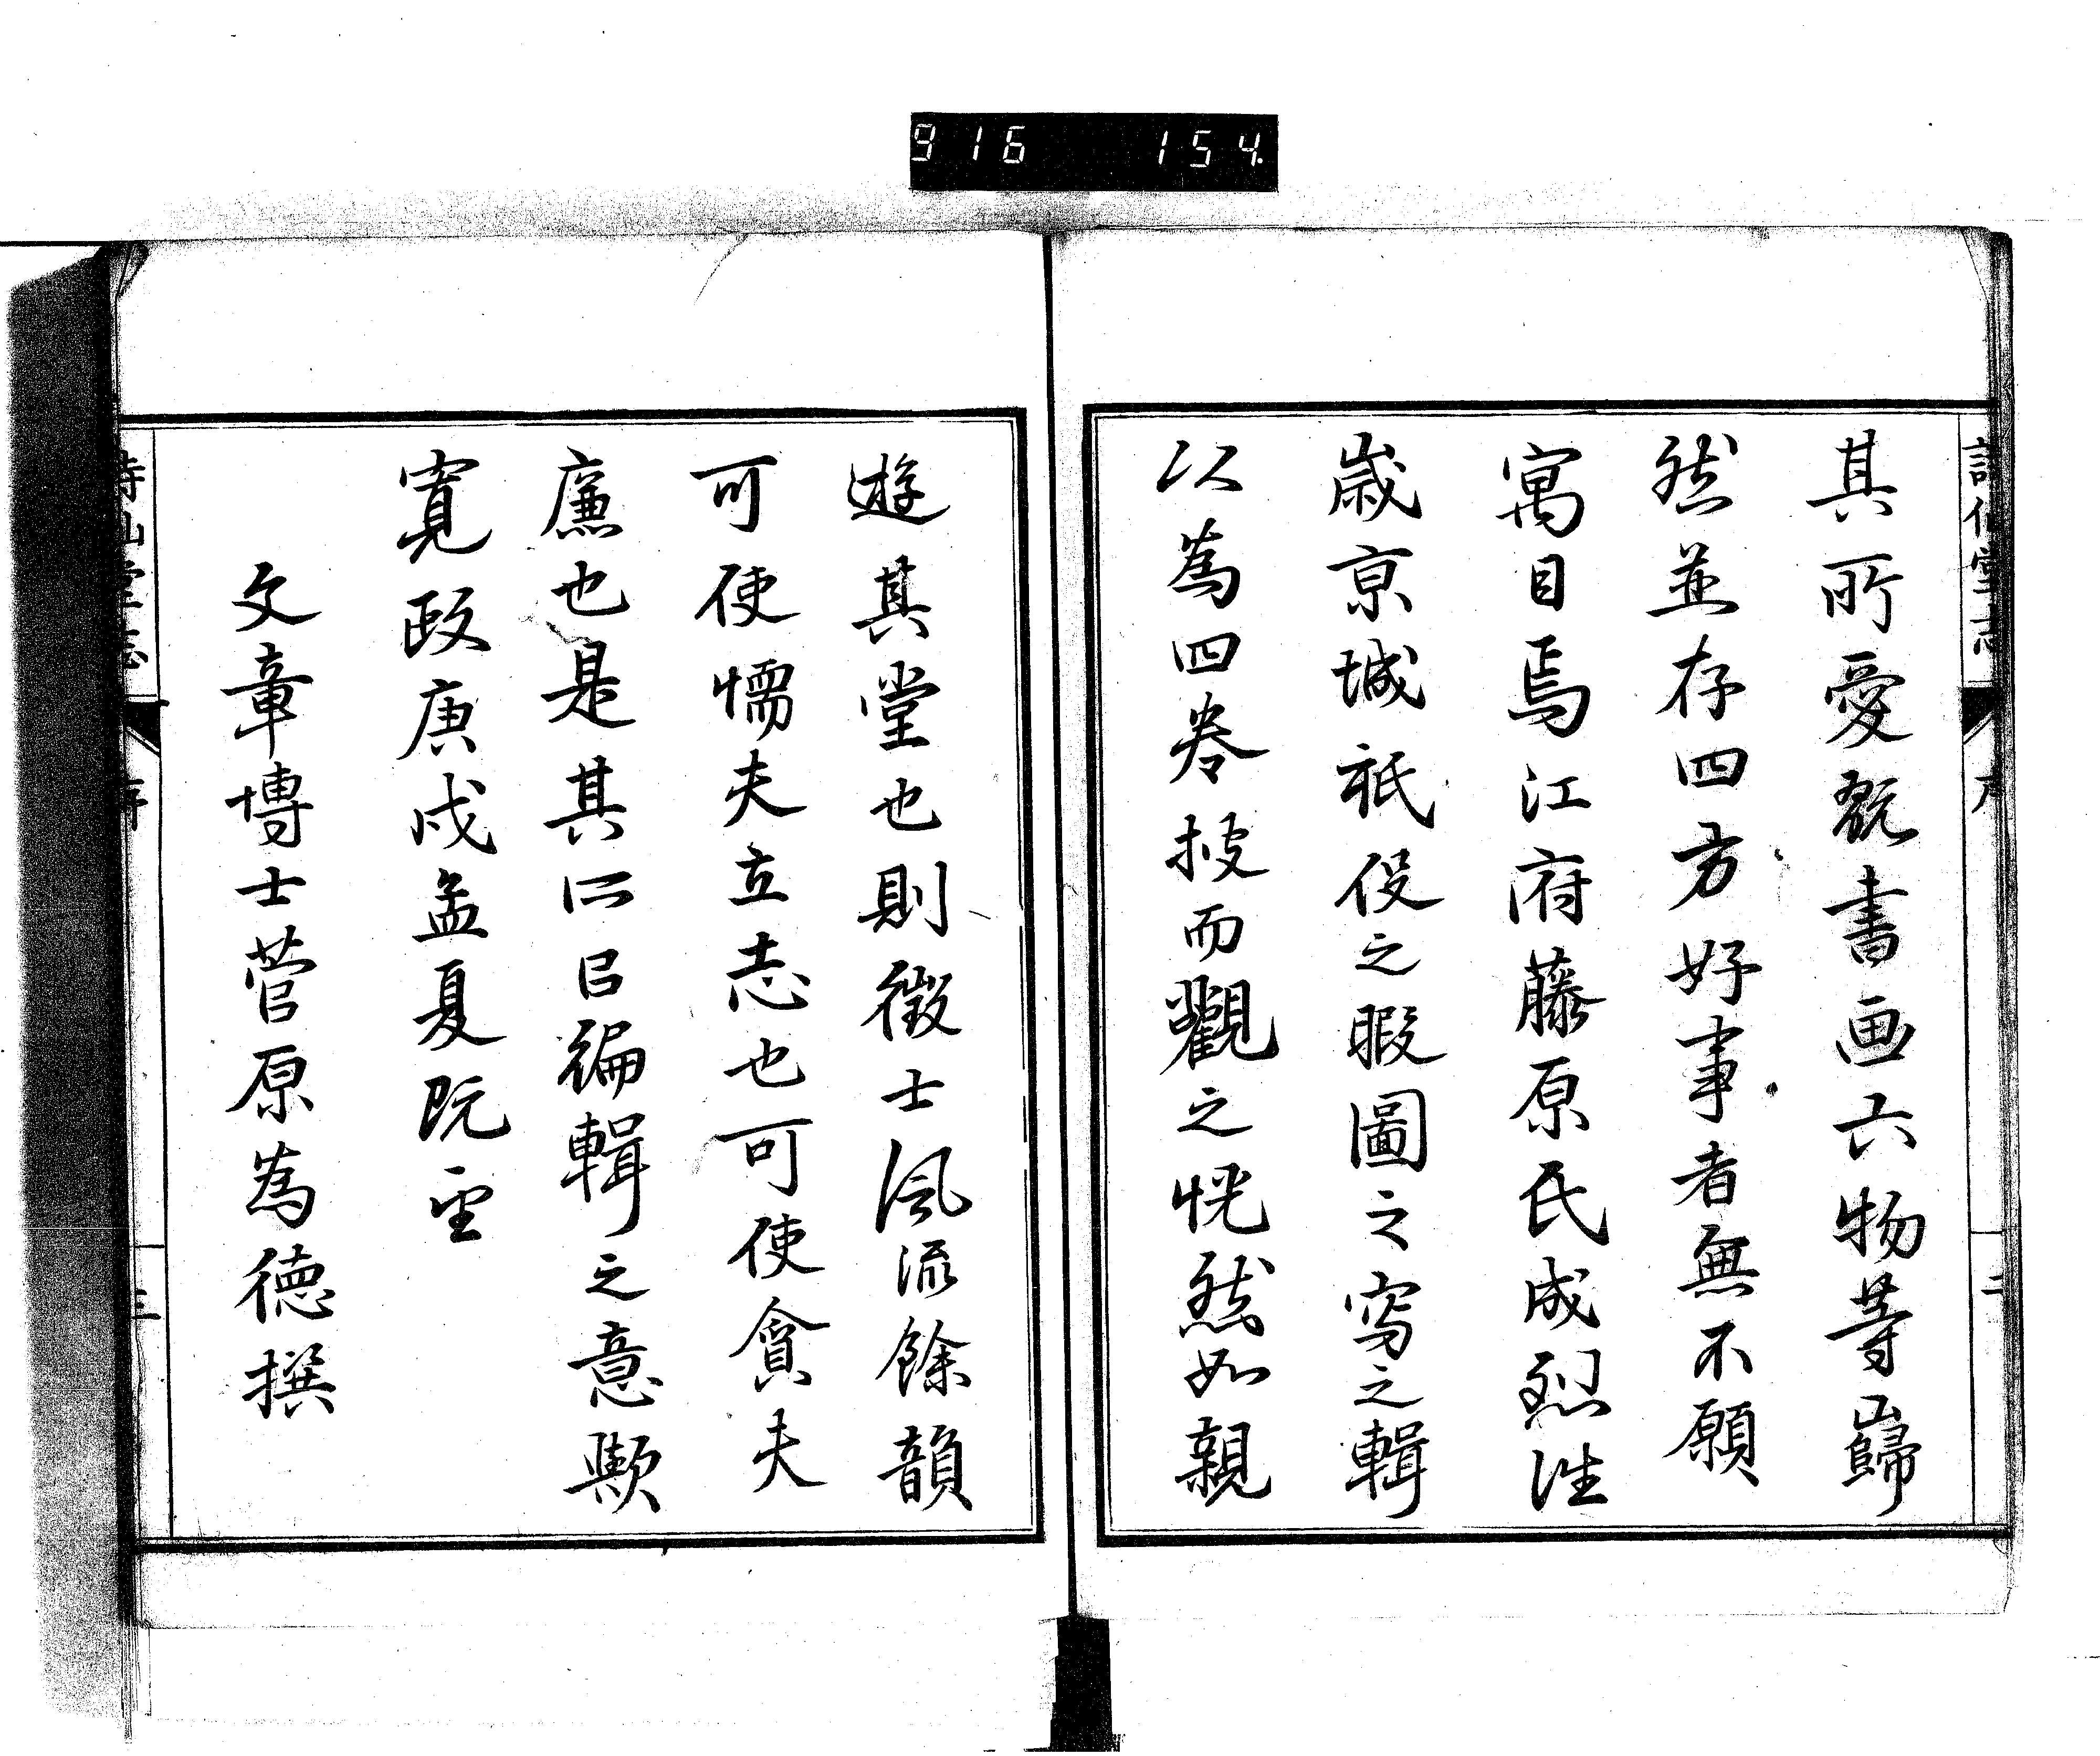 916 154
詩仙堂志 序 二
其所愛翫書画六物等巋
然並存四方好事者無不願
寓目焉江府藤原氏成烈往
歳京城祇役之暇圖之寫之輯
以為四卷披而觀之恍然如親
遊其堂也則徴士風流餘韻
可使懦夫立志也可使貪夫
廉也是其所㠯編輯之意歟
寛政庚戌孟夏既望
文章博士菅原為徳撰
詩仙堂志 序 三